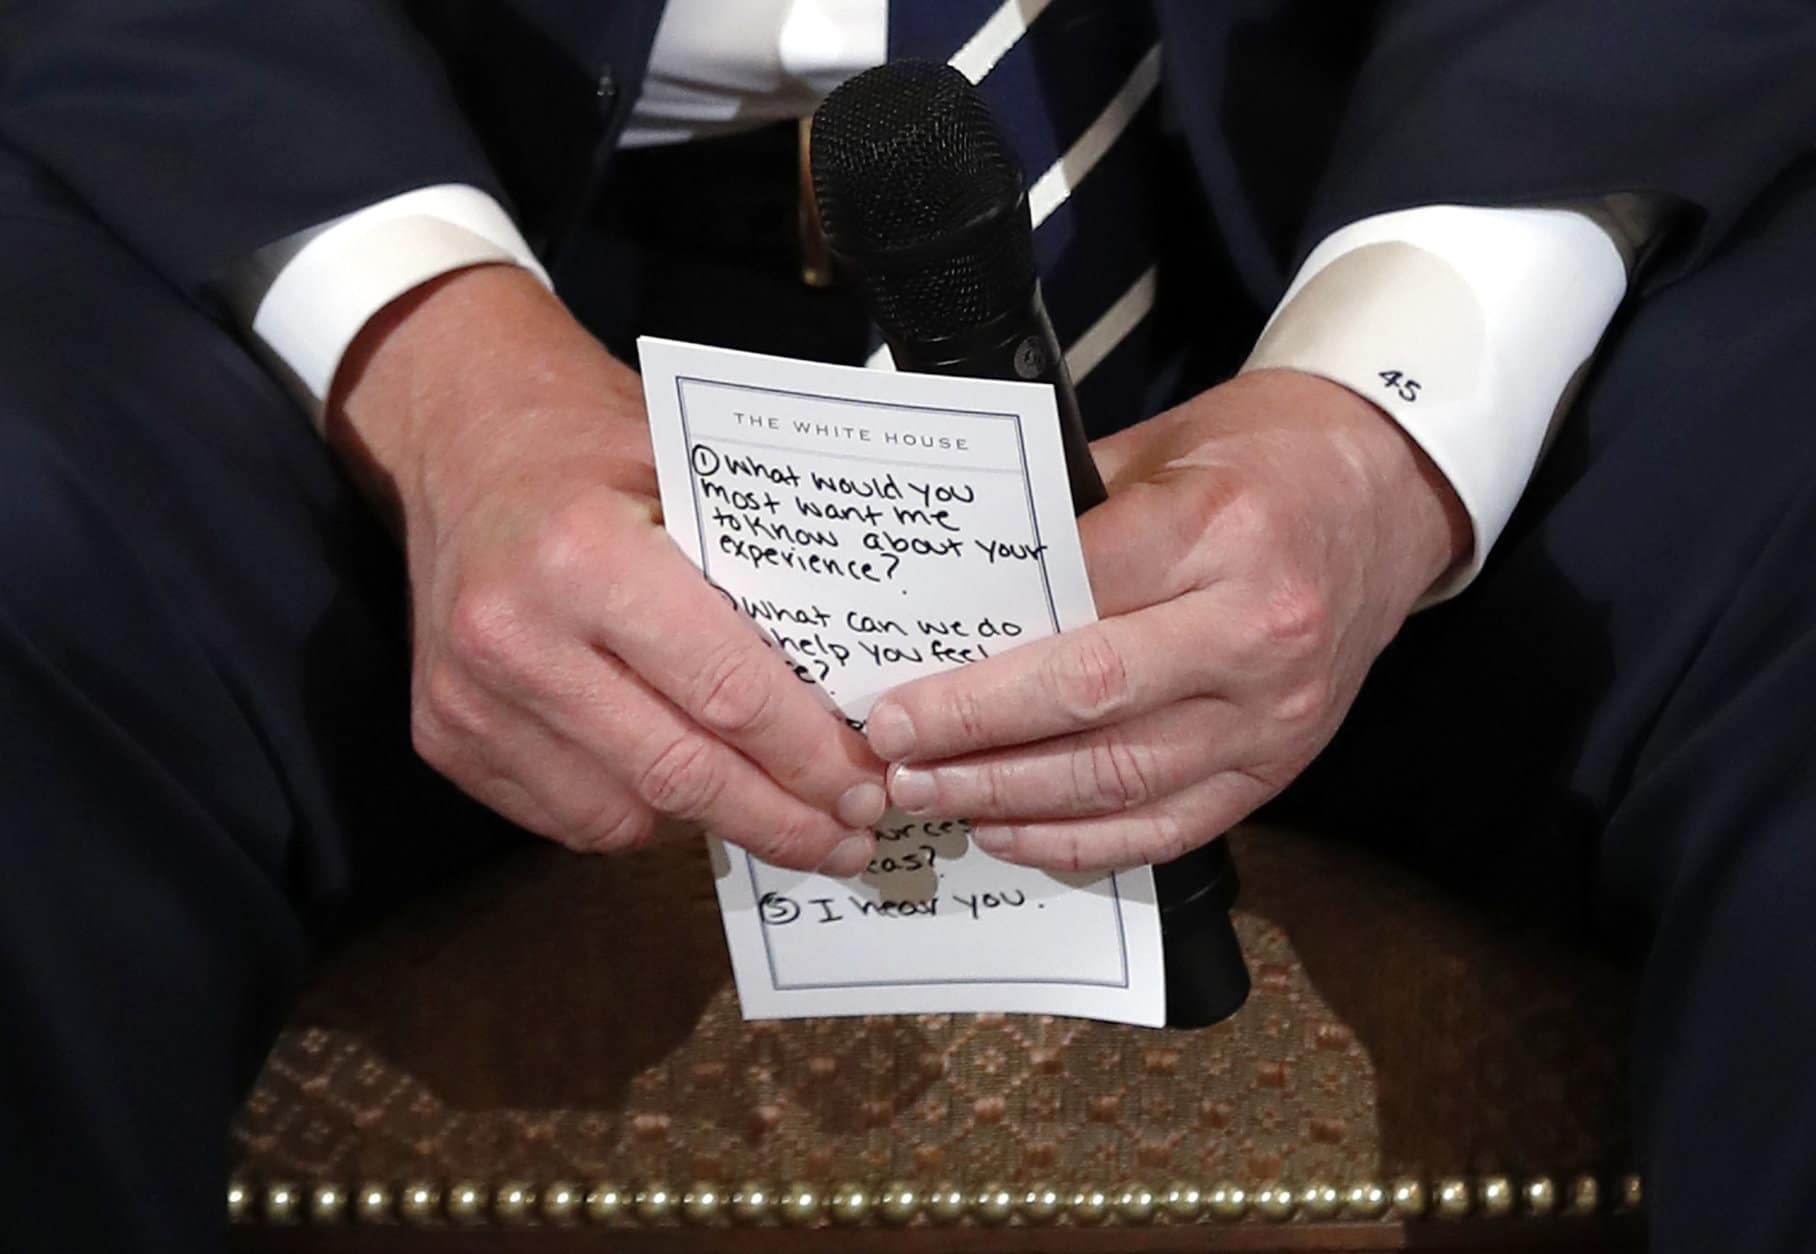 THE WHITE HOUSE
① What would you
most want me
to know about your
experience?
What can we do
help you feel
cas?
⑤ I hear you.
45